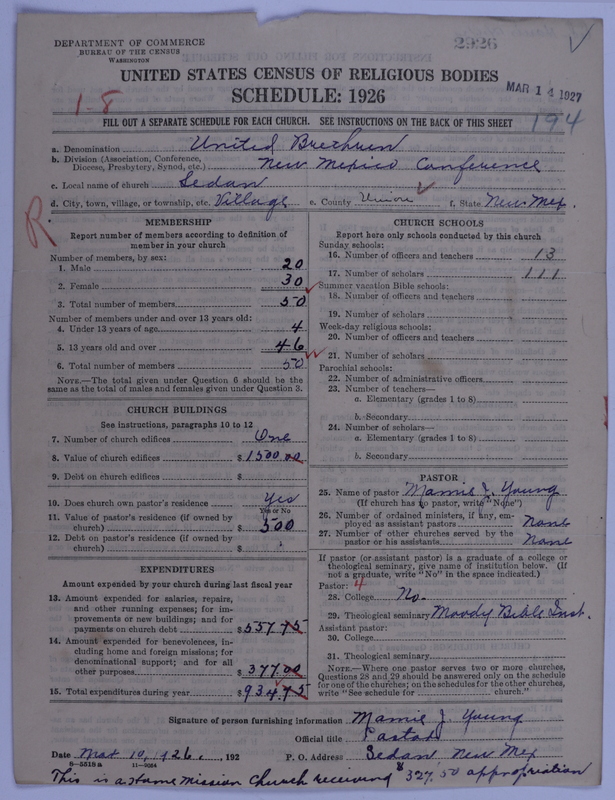 DEPARTMENT OF COMMERCE
BUREAU OF THE CENSUS
WASHINGTON
2926
UNITED STATES CENSUS OF RELIGIOUS BODIES
SCHEDULE: 1926
MAR 14 1927
1-8
194
FILL OUT A SEPARATE SCHEDULE FOR EACH CHURCH. SEE INSTRUCTIONS ON THE BACK OF THIS SHEET
a. Denomination United Brethren
b. Division (Association, Conference, Diocese, Presbytery, Synod, etc.) New Mexico Conference
c. Local name of church Sedan
d. City, town, village, or township, etc. Village e. County Union f. State New Mex.
R
MEMBERSHIP
Report number of members according to definition of member in your church
Number of members, by sex:
1. Male 20
2. Female 30
3. Total number of members 50
Number of members under and over 13 years old:
4. Under 13 years of age 4
5. 13 years old and over 46
6. Total number of members 50
NOTE.—The total given under Question 6 should be the same as the total of males and females given under Question 3.
CHURCH BUILDINGS
See instructions, paragraphs 10 to 12
7. Number of church edifices One
8. Value of church edifices $ 1500 00
9. Debt on church edifices $
10. Does church own pastor's residence Yes
Yes or No
11. Value of pastor's residence (if owned by church) $ 500
12. Debt on pastor's residence (if owned by church) $
EXPENDITURES
Amount expended by your church during last fiscal year
13. Amount expended for salaries, repairs, and other running expenses; for improvements or new buildings; and for payments on church debt $ 557.75
14. Amount expended for benevolences, including home and foreign missions; for denominational support; and for all other purposes $ 377 00
15. Total expenditures during year $ 934.75
CHURCH SCHOOLS
Report here only schools conducted by this church
Sunday schools:
16. Number of officers and teachers 13
17. Number of scholars 111
Summer vacation Bible schools:
18. Number of officers and teachers
19. Number of scholars
Week-day religious schools:
20. Number of officers and teachers
21. Number of scholars
Parochial schools:
22. Number of administrative officers
23. Number of teachers—
a. Elementary (grades 1 to 8)
b. Secondary
24. Number of scholars—
a. Elementary (grades 1 to 8)
b. Secondary
PASTOR
25. Name of pastor Mamie J. Young
(If church has no pastor, write "None")
26. Number of ordained ministers, if any, employed as assistant pastors None
27. Number of other churches served by the pastor or his assistants None
If pastor (or assistant pastor) is a graduate of a college or theological seminary, give name of institution below. (If not a graduate, write "No" in the space indicated.)
Pastor: 4
28. College No.
29. Theological seminary Moody Bible Inst.
Assistant pastor:
30. College
31. Theological seminary
NOTE.—Where one pastor serves two or more churches, Questions 28 and 29 should be answered only on the schedule for one of the churches; on the schedules for the other churches, write "See schedule for church."
Signature of person furnishing information Mamie J. Young
Official title Pastor
Date Mar 10, 1926, 192 P. O. Address Sedan New Mex
8-5518 a 11-9084
This is a Home Mission Church receiving $327.50 appropriation